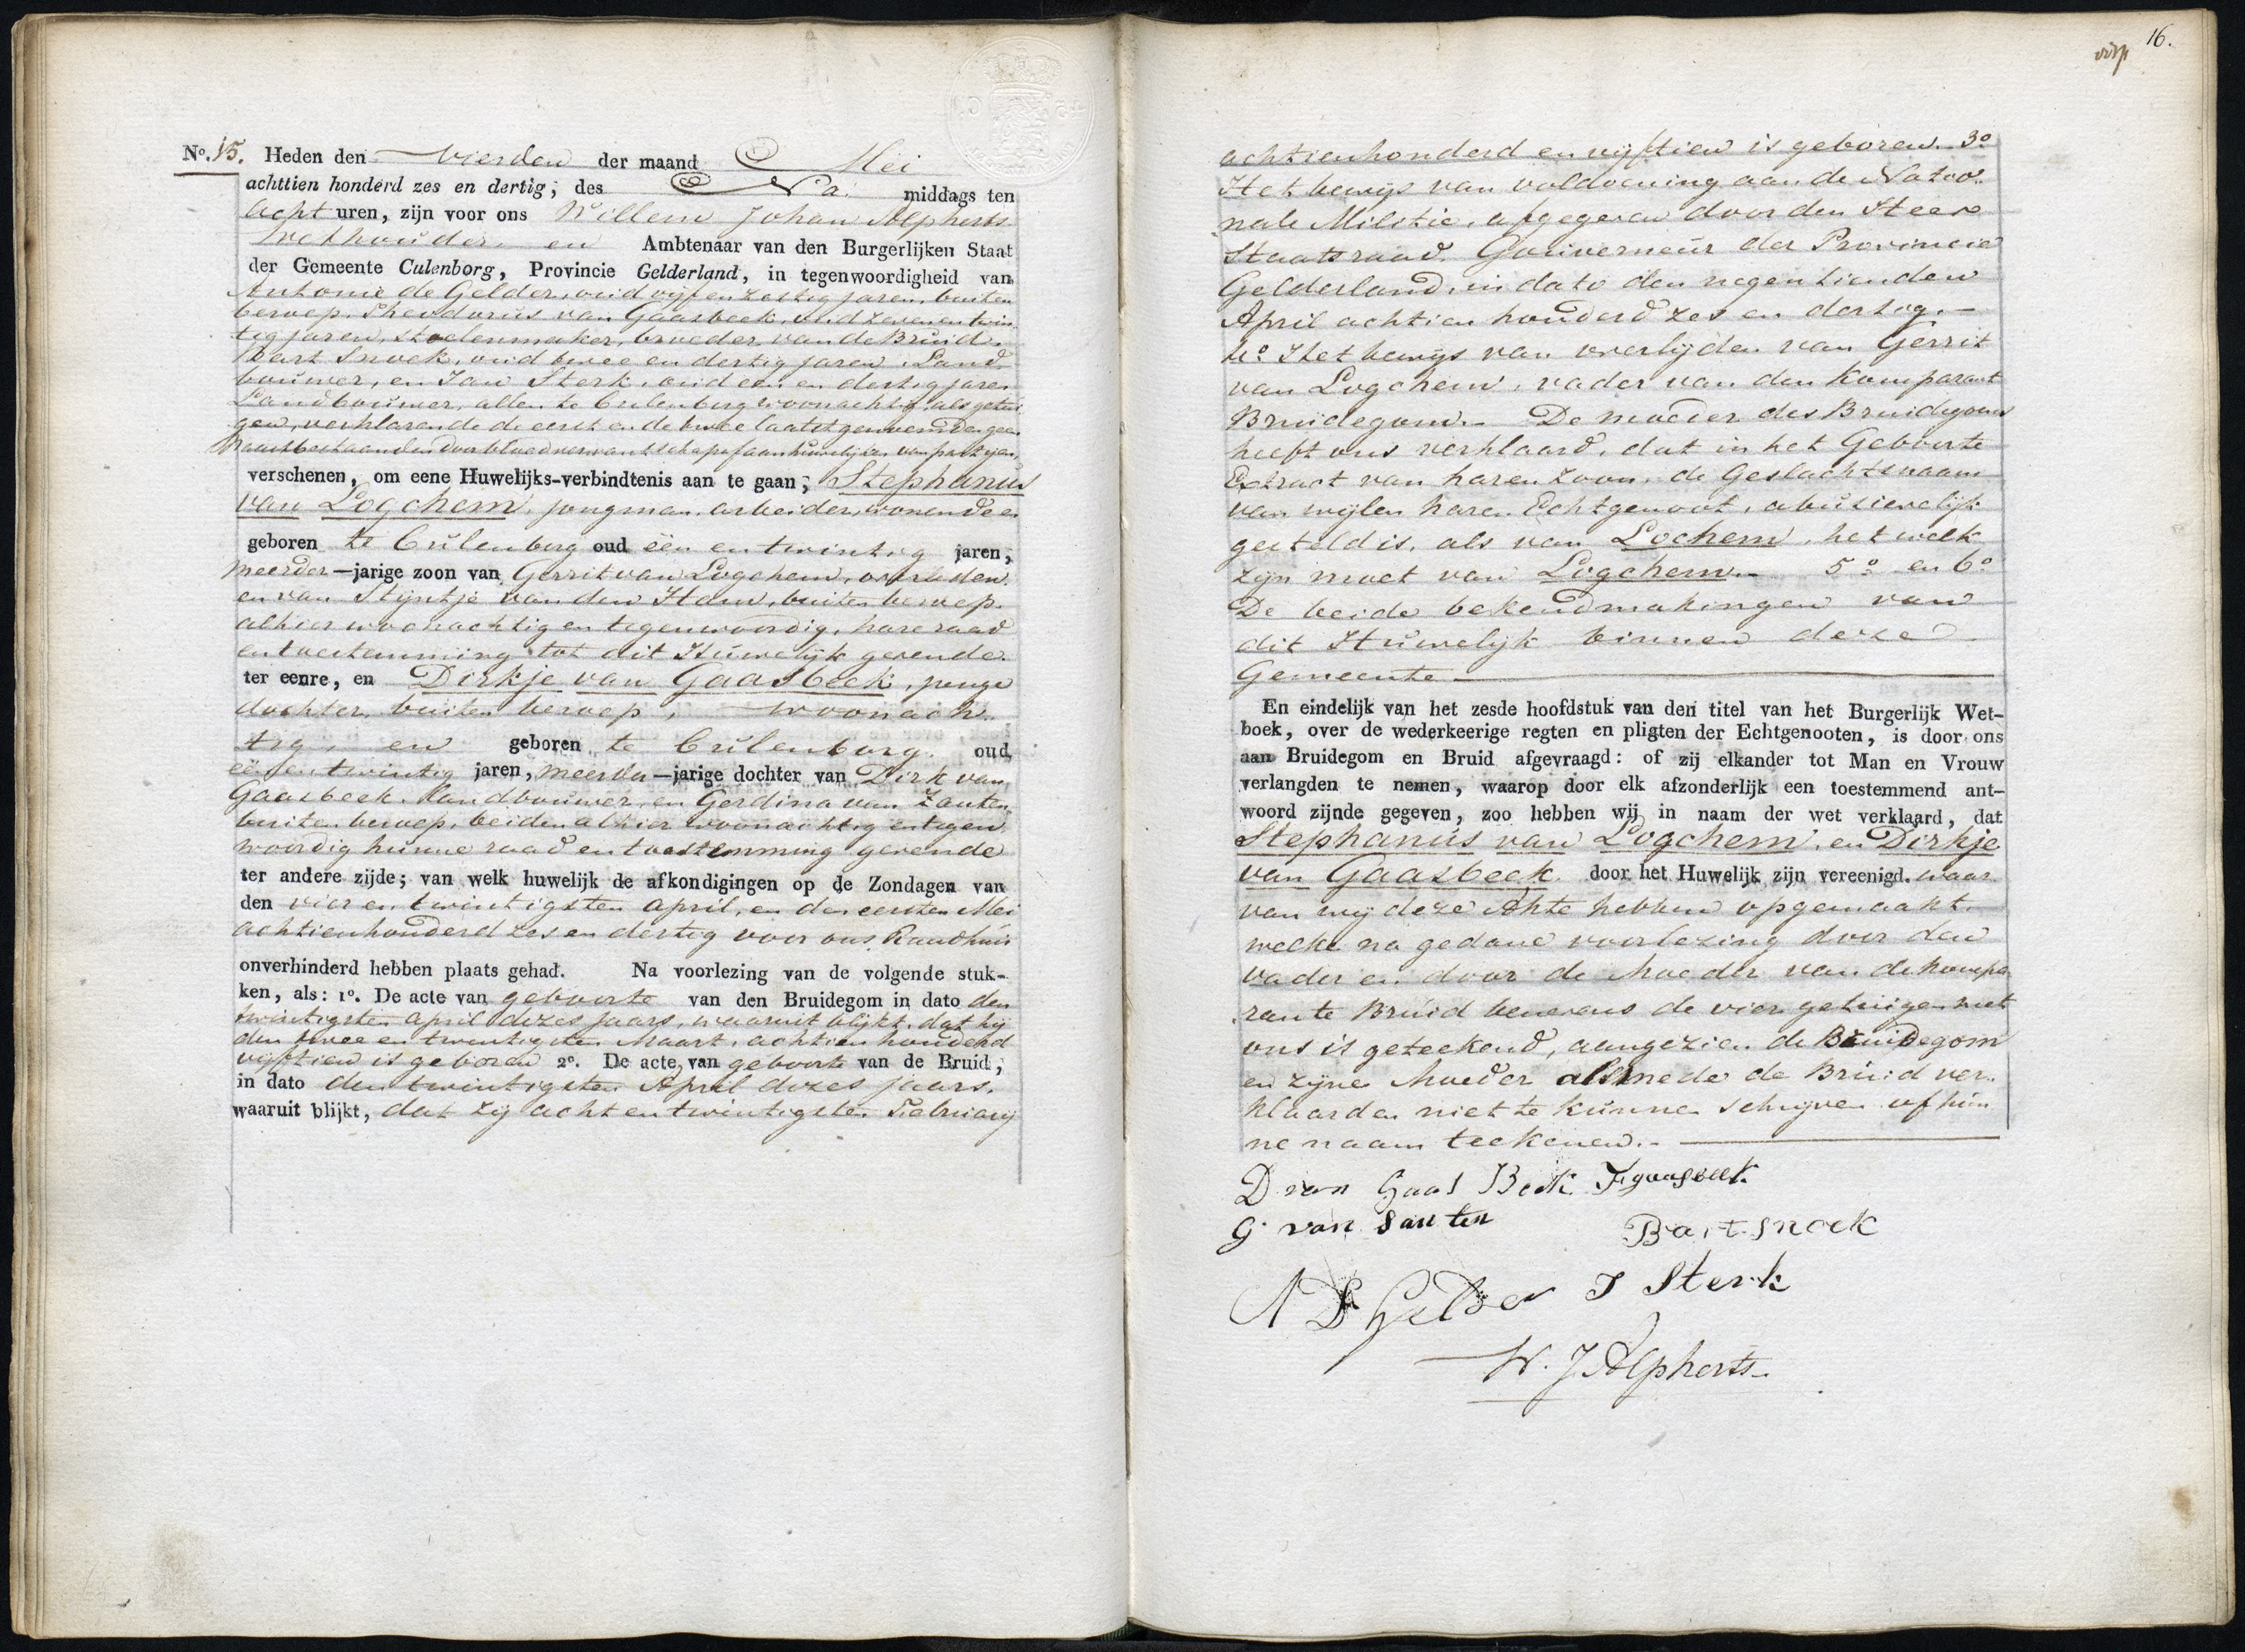 No. 15. Heden den vierden der maand Mei
achttien honderd zes en dertig, des Na middags ten
acht uren, zijn voor ons Willem Johan Alpherts
Wethouder en Ambtenaar van den Burgerlijken Staat
der Gemeente Culenborg, Provincie Gelderland, in tegenwoordigheid van
Antonie de Gelder, oud vijf en zestig jaren, buiten
beroep, Theodorus van Gaasbeek, oud zeven en twin
tig jaren, stoelenmaker, broeder van de Bruid.
Bart Snoek, oud twee en dertig jaren, Land
bouwer, en Jan Sterk, oud een en dertig jaren
Landbouwer, allen te Culenborg woonachtig, als getui
gen, verklarende de eerst en de twee laatstgenoemden geen
naastbestaanden door bloedverwantschap of aanhuwelijken van partijen
verschenen, om eene Huwelijks-verbindtenis aan te gaan; Stephanus
van Logchem, jongman, arbeider, wonende en
geboren te Culenborg oud één en twintig jaren,
meerder-jarige zoon van Gerrit van Logchem, overleden,
en van Stijntje van den Ham, buiten beroep
alhier woonachtig en tegenwoordig, hare raad
en toestemming tot dit Huwelijk gevende.
ter eenre, en Dirkje van Gaasbeek, jonge
dochter, buiten beroep, woonach
tig, en geboren te Culenborg, oud
één en twintig jaren, meerder-jarige dochter van Dirk van
Gaasbeek, Landbouwer, en Gerdina van Zanten,
buiten beroep, beiden alhier woonachtig en tegen
woordig hunne raad en toestemming gevende
ter andere zijde; van welk huwelijk de afkondigingen op de Zondagen van
den vier en twintigsten April, en den eersten Mei
achtienhonderd zes en dertig voor ons Raadhuis
onverhinderd hebben plaats gehad. Na voorlezing van de volgende stuk-
ken, als: 1o. De acte van geboorte van den Bruidegom in dato den
twintigsten April dezes jaars, waaruit blijkt, dat hij
den twee en twintigsten Maart, achtien honderd
vijftien is geboren 2o. De acte van geboorte van de Bruid,
in dato den twintigsten April dezes jaars.
waaruit blijkt, dat zij acht en twintigsten Februarij
16.
achtienhonderd en vijftien is geboren. 3o
Het bewijs van voldoening aan de Natio
nale Militie, afgegeven door den Heere
Staatsraad, Gouverneur der Provincie
Gelderland, in dato den negentienden
April achtien honderd zes en dertig.-
4o Het bewijs van overlijden van Gerrit
van Logchem, vader van den Komparant
Bruidegom.- De moeder des Bruidegoms
heeft ons verklaard, dat in het Geboorte
Extract van haren zoon, de Geslachtsnaam
van wijlen haren Echtgenoot, abusievelijk
gesteld is, als van Lochem, het welk
zijn moet van Logchem.- 5o en 6o
De beide bekendmakingen van
dit Huwelijk binnen deze
Gemeente
En eindelijk van het zesde hoofdstuk van den titel van het Burgerlijk Wet-
boek, over de wederkeerige regten en pligten der Echtgenooten, is door ons
aan Bruidegom en Bruid afgevraagd: of zij elkander tot Man en Vrouw
verlangden te nemen, waarop door elk afzonderlijk een toestemmend ant-
woord zijnde gegeven, zoo hebben wij in naam der wet verklaard, dat
Stephanus van Logchem, en Dirkje
van Gaasbeek. door het Huwelijk zijn vereenigd. waar
van wij deze Akte hebben opgemaakt.
welke na gedane voorlezing door den
vader en door de Moeder van de kompa
rante Bruid benevens de vier getuigen met
ons is geteekend, aangezien de Bruidegom
en zijne Moeder alsmede de Bruid ver
klaarden niet te kunnen schrijven of hun
ne naam teekenen.-
D van Gaas Beek F gaasbeek
G van Santen
Bart Snoek
A D Gelder J Sterk
W. J Alpherts